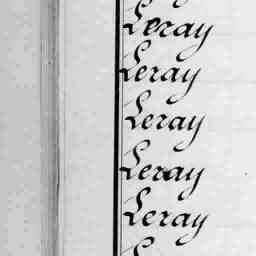 Leray
Leray
Leray
Leray
Leray